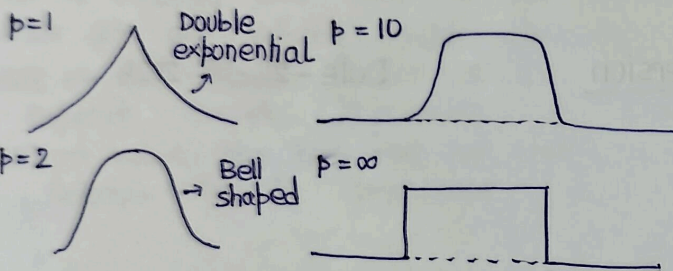 p=1
Double
exponential
p = 10
p=2
Bell
shaped
p=∞